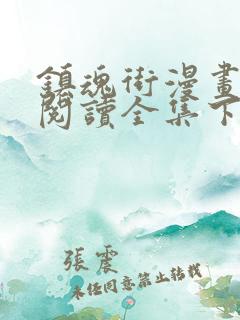 鎮魂街漫畫
閱讀全集下
張震
未經同意禁止轉載